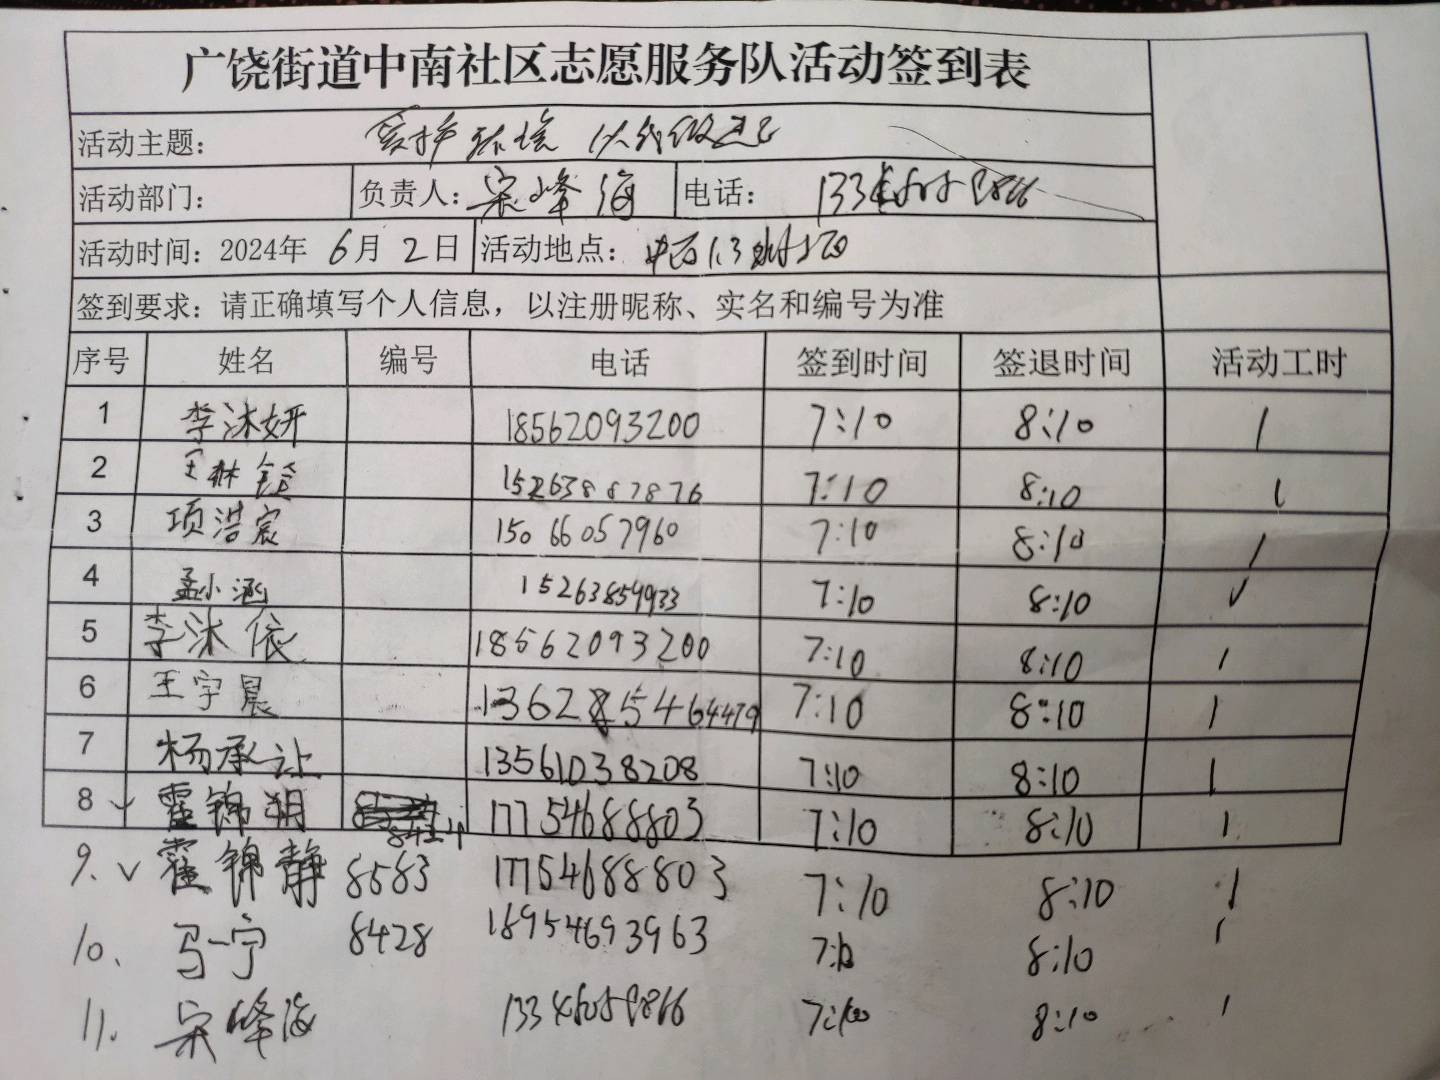 广饶街道中南社区志愿服务队活动签到表
活动主题： 爱护环境 从我做起
活动部门： 负责人：宋峰海 电话：
活动时间：2024年6月2日 活动地点：
签到要求：请正确填写个人信息，以注册昵称、实名和编号为准
序号 姓名 编号 电话 签到时间 签退时间 活动工时
1 李沐妍 18562093200 7:10 8:10 1
2 王琳 15263887876 7:10 8:10 1
3 项浩宸 15066057960 7:10 8:10 1
4 孟小涵 15263859933 7:10 8:10
5 李沐依 18562093200 7:10 8:10 1
6 王宇晨 7:10 8:10 1
7 杨承让 13561038208 7:10 8:10 1
8 ✓ 霍锦明 17754688803 7:10 8:10 1
9. ✓ 霍锦静 8583 17754688803 7:10 8:10 1
10、 马一宁 8428 18954693963 7:10 8:10 1
11. 宋峰海 8:10 1